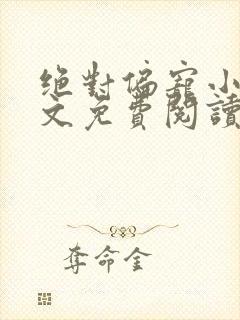 絕對偏寵小
文免費閱讀
奪命金